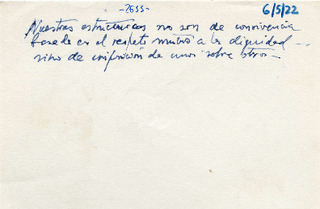 -2655-
6/5/22
Nuestras estructuras no son de convivencia
basada en el respeto mutuo a la dignidad --
sino de imposición de unos sobre otros -